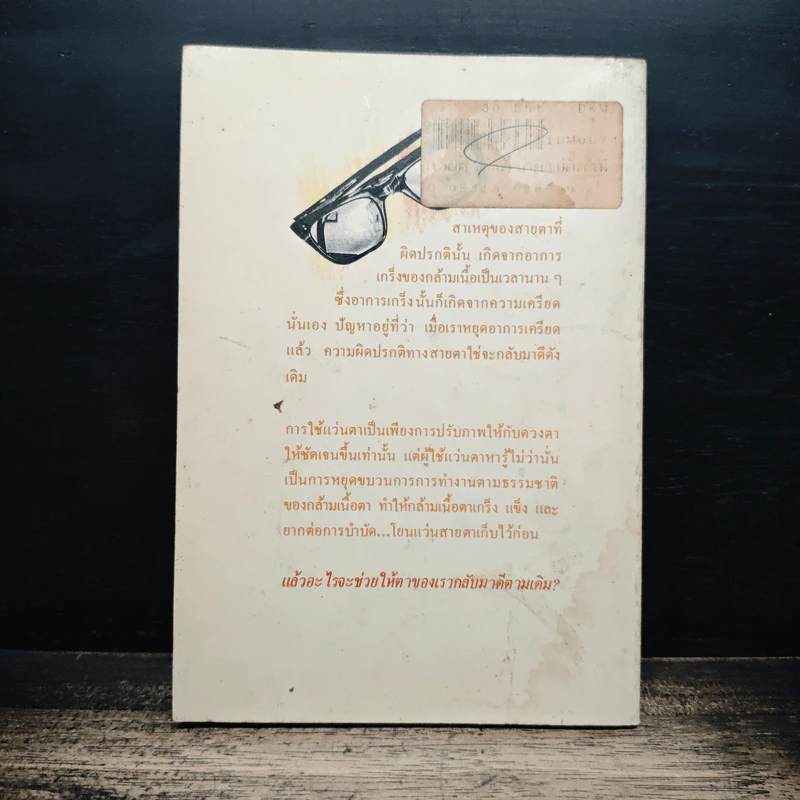 สาเหตุของสายตาที่
ผิดปรกตินั้น เกิดจากอาการ
เกร็งของกล้ามเนื้อเป็นเวลานาน ๆ
ซึ่งอาการเกร็งนั้นก็เกิดจากความเครียด
นั่นเอง ปัญหาอยู่ที่ว่า เมื่อเราหยุดอาการเครียด
แล้ว ความผิดปรกติทางสายตาใช่จะกลับมาดีดัง
เดิม
การใช้แว่นตาเป็นเพียงการปรับภาพให้กับดวงตา
ให้ชัดเจนขึ้นเท่านั้น แต่ผู้ใช้แว่นตาหารู้ไม่ว่านั่น
เป็นการหยุดขบวนการการทำงานตามธรรมชาติ
ของกล้ามเนื้อตา ทำให้กล้ามเนื้อตาเกร็ง แข็ง และ
ยากต่อการบำบัด...โยนแว่นสายตาเก็บไว้ก่อน
แล้วอะไรจะช่วยให้ตาของเรากลับมาดีตามเดิม?